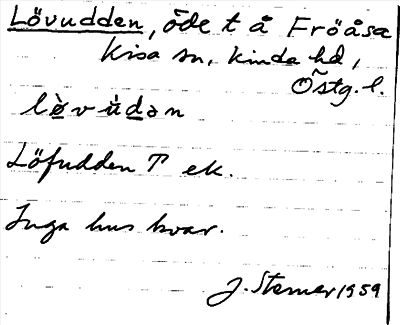 Lövudden, öde t å Fröåsa
Kisa sn, Kinda hd,
Östg. l.
lø̀vùdən
Löfudden T ek.
Inga hus kvar.
J. Sterner 1959